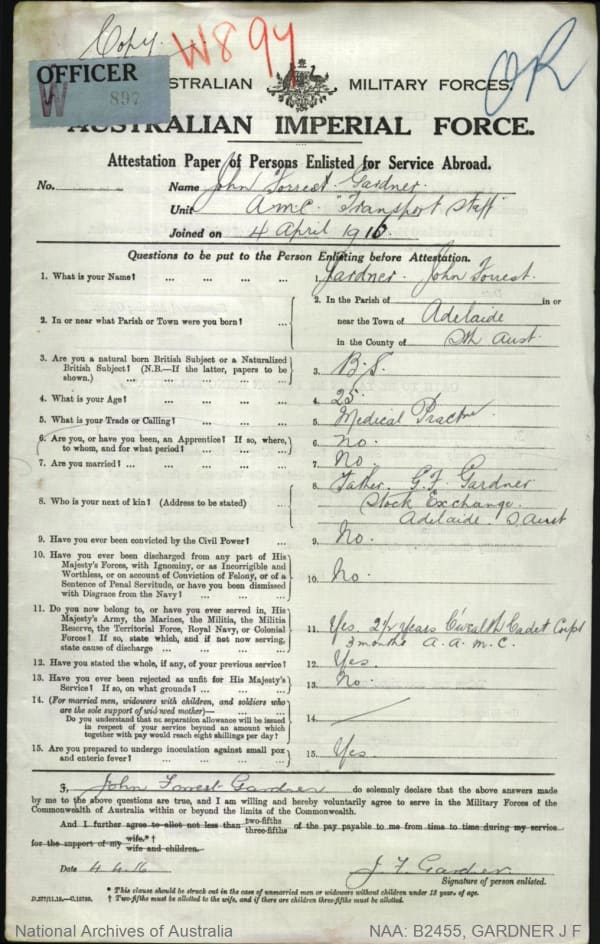 Copy.
W894
OFFICER
W 897
OR
AUSTRALIAN MILITARY FORCES.
AUSTRALIAN IMPERIAL FORCE.
Attestation Paper of Persons Enlisted for Service Abroad.
No. Name John Forrest Gardner.
Unit A.M.C. "Transport Staff"
Joined on 4 April 1916
Questions to be put to the Person Enlisting before Attestation.
1. What is your Name? ... ... ... ... 1. Gardner. John Forrest.
2. In or near what Parish or Town were you born? ... 2. In the Parish of in or
near the Town of Adelaide
in the County of Sth Aust.
3. Are you a natural born British Subject or a Naturalized
British Subject? (N.B.—If the latter, papers to be
shown.) ... ... ... ... 3. B.S.
4. What is your Age? ... ... ... ... 4. 25
5. What is your Trade or Calling? ... ... ... 5. Medical Practnr.
6. Are you, or have you been, an Apprentice? If so, where,
to whom, and for what period? ... ... ... 6. No.
7. Are you married? ... ... ... ... 7. No.
8. Who is your next of kin? (Address to be stated) ... 8. Father. G.F. Gardner
Stock Exchange.
Adelaide. S Aust
9. Have you ever been convicted by the Civil Power? ... 9. No.
10. Have you ever been discharged from any part of His
Majesty's Forces, with Ignominy, or as Incorrigible and
Worthless, or on account of Conviction of Felony, or of a
Sentence of Penal Servitude, or have you been dismissed
with Disgrace from the Navy? ... ... ... 10. No.
11. Do you now belong to, or have you ever served in, His
Majesty's Army, the Marines, the Militia, the Militia
Reserve, the Territorial Force, Royal Navy, or Colonial
Forces? If so, state which, and if not now serving,
state cause of discharge ... ... ... 11. Yes. 2½ years C'wealth Cadet Corps
3 months A.A.M.C.
12. Have you stated the whole, if any, of your previous service? 12. Yes.
13. Have you ever been rejected as unfit for His Majesty's
Service? If so, on what grounds? ... ... ... 13. No.
14. (For married men, widowers with children, and soldiers who
are the sole support of widowed mother)—
Do you understand that no separation allowance will be issued
in respect of your service beyond an amount which
together with pay would reach eight shillings per day? 14.
15. Are you prepared to undergo inoculation against small pox
and enteric fever? ... ... ... ... 15. Yes.
I, John Forrest Gardner do solemnly declare that the above answers made
by me to the above questions are true, and I am willing and hereby voluntarily agree to serve in the Military Forces of the
Commonwealth of Australia within or beyond the limits of the Commonwealth.
And I further agree to allot not less than two-fifths three-fifths of the pay payable to me from time to time during my service
for the support of my wife.*† wife and children.
Date 4.4.16 J.F. Gardner
Signature of person enlisted.
* This clause should be struck out in the case of unmarried men or widowers without children under 18 years of age.
D.277/11.15.—C.15730. † Two-fifths must be allotted to the wife, and if there are children three-fifths must be allotted.
National Archives of Australia NAA: B2455, GARDNER J F